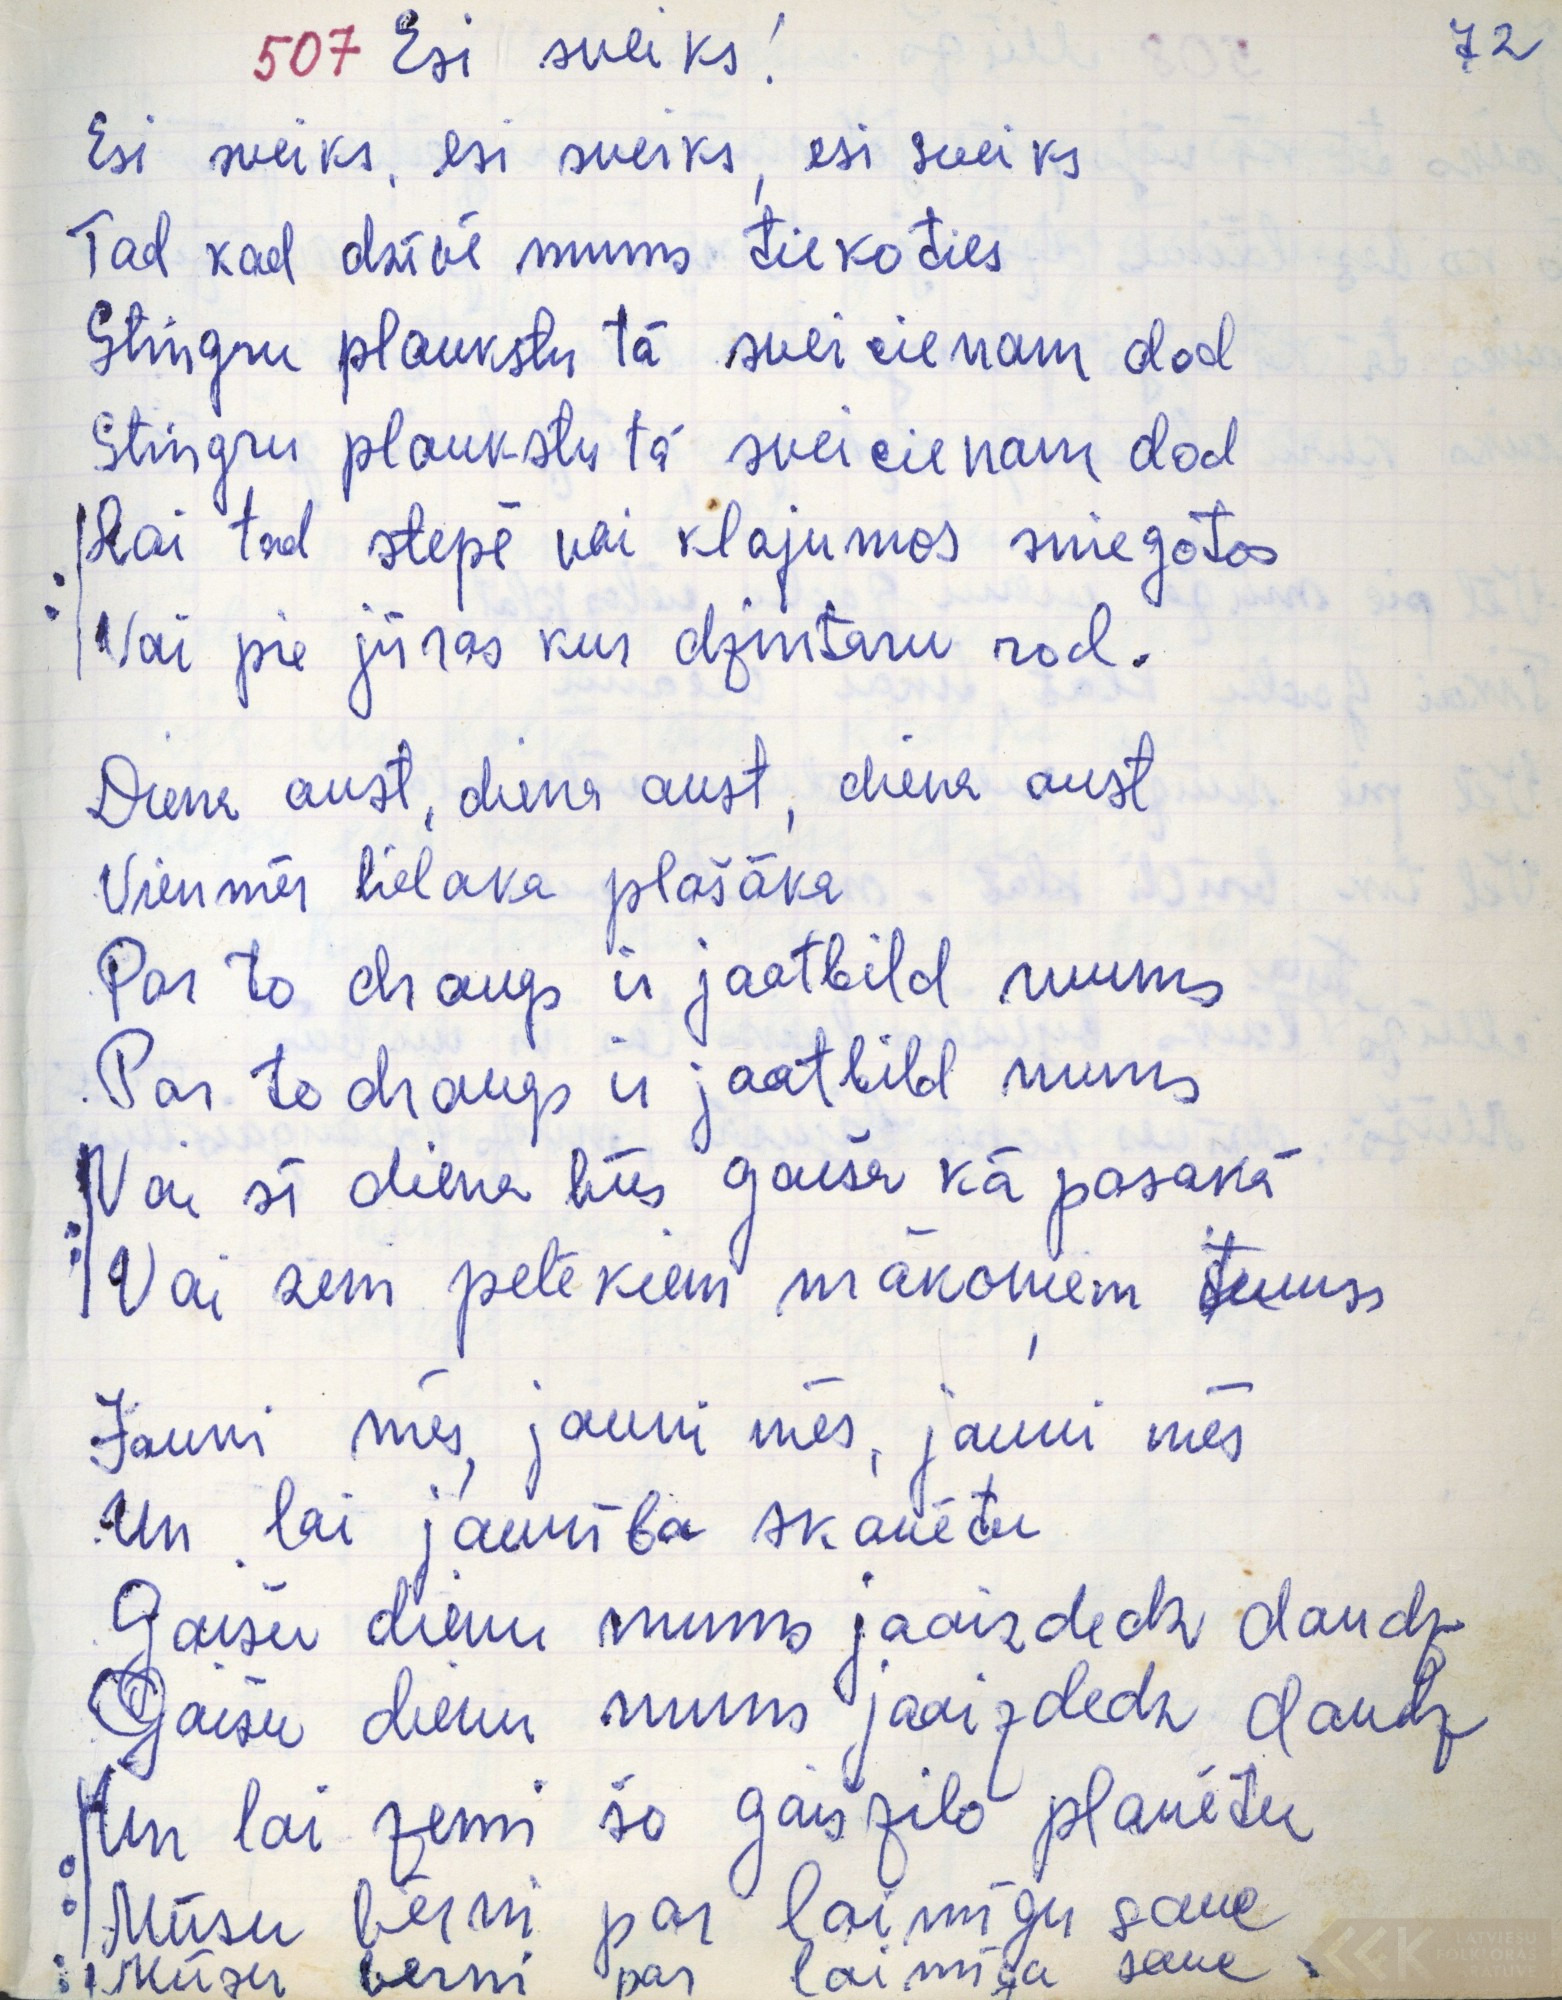 507 Esi sveiks! 72
Esi sveiks, esi sveiks, esi sveiks
Tad kad dzīvē mums tiekoties
Stingru plaukstu tā sveicienam dod
Stingru plaukstu tā sveicienam dod
Lai tad stepē vai klajumos sniegotos
Vai pie jūras kur dzintaru rod.
Diena aust, diena aust, diena aust
Vienmēr lielaka plašāka
Par to draugs ir jaatbild mums
Par to draugs ir jaatbild mums
Vai sī diena būs gaiša kā pasakā
Vai zem pelēkiem mākoņiem tumss
Jauni mēs, jauni mēs, jauni mēs
Un lai jaunība skanētu
Gaišu dienu mums jaaizdedz daudz
Gaišu dienu mums jaaizdedz daudz
Un lai zemi šo gaišzilo planētu
Mūsu bērni par laimīgu sauc
Mūsu berni par laimīgu sauc.
LATVIEŠU
FOLKLORAS
KRATUVE